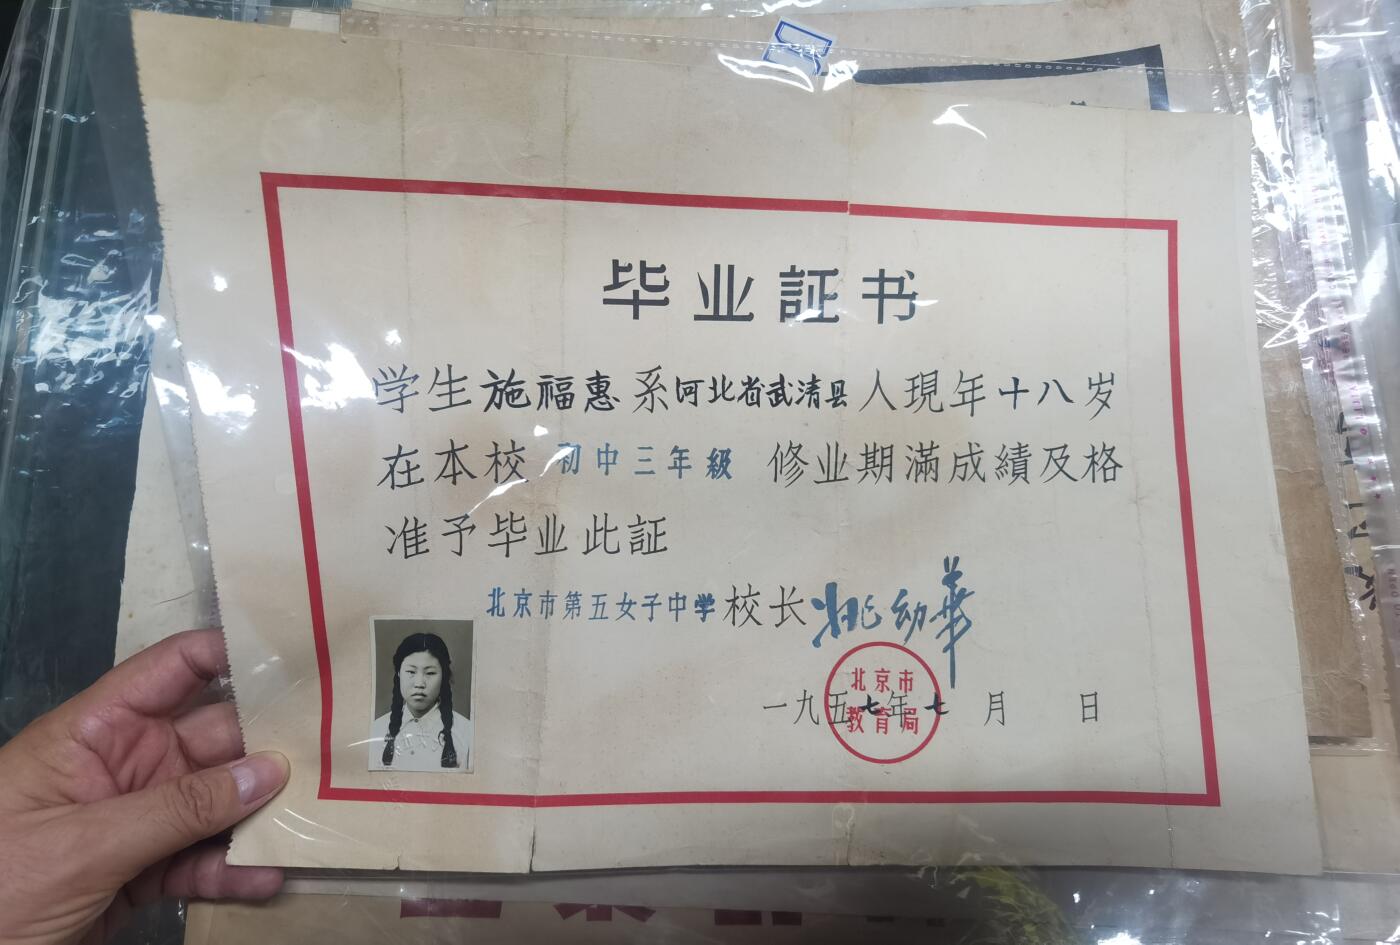 毕业証书
学生施福惠系河北省武清县人現年十八岁
在本校初中三年級修业期滿成績及格
准予毕业此証
北京市第五女子中学校长姚幼華
一九五七年七月 日
北京市
教育局